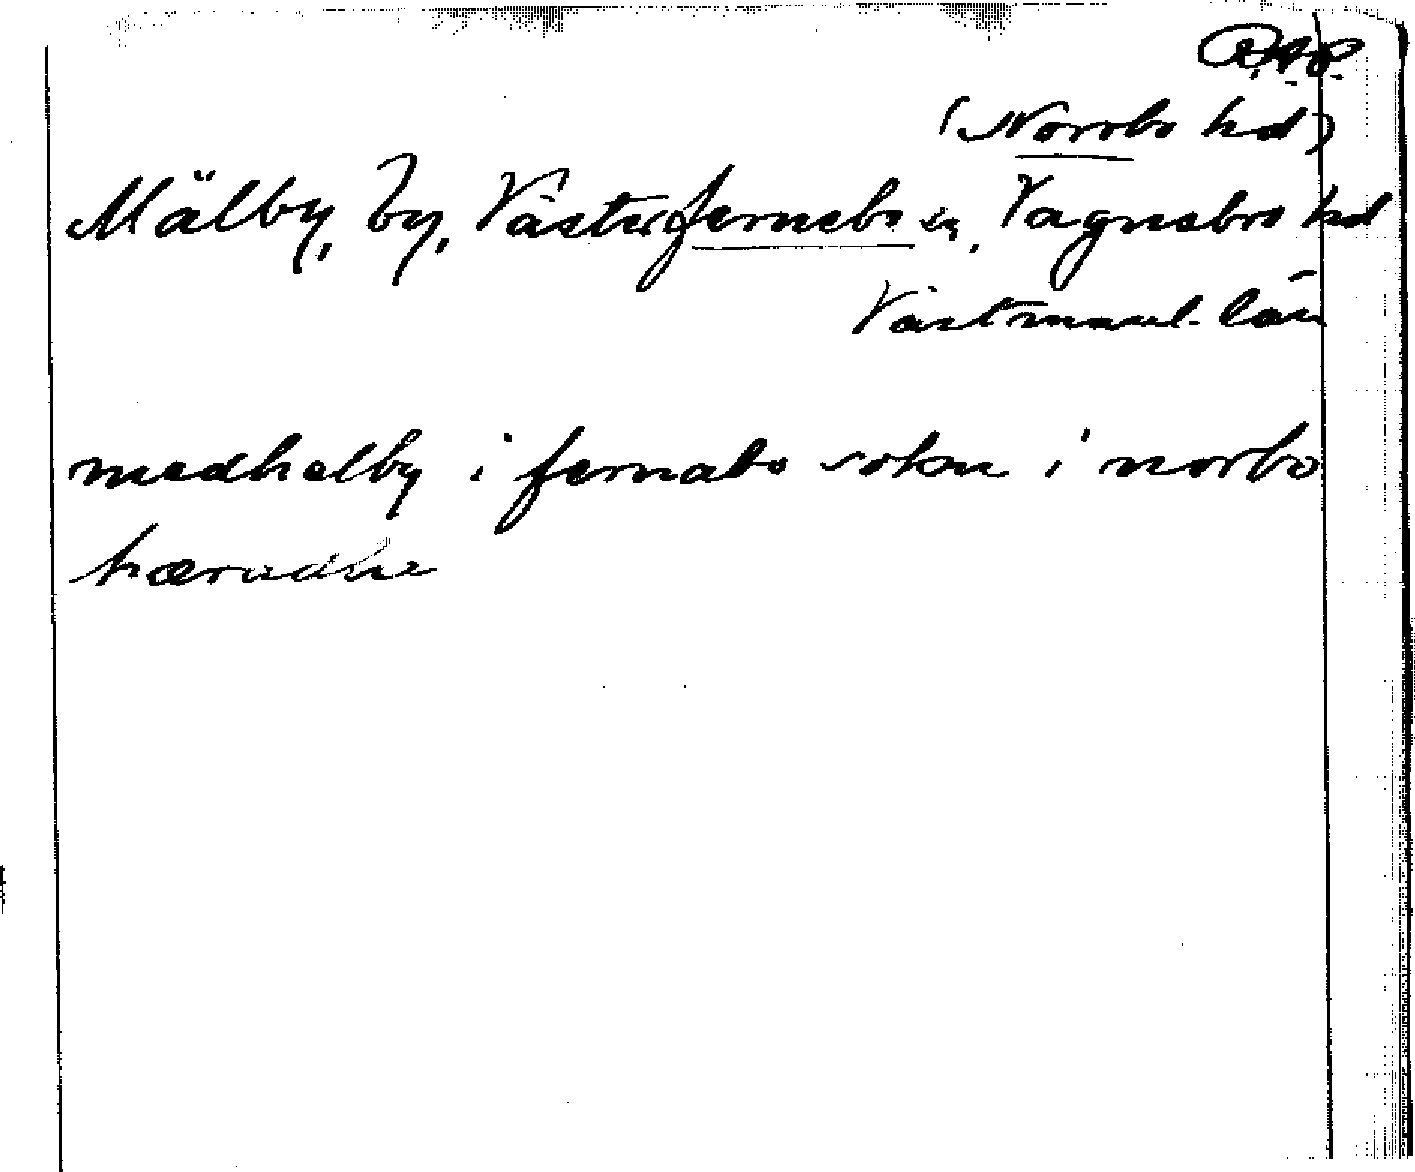 R.A.P.
(Norrbo hd)
Mälby, by, Västerfernebo sn, Vagnsbro hd
Västmanl. län
medhelby i fernabo sokn i norbo
hæradhe